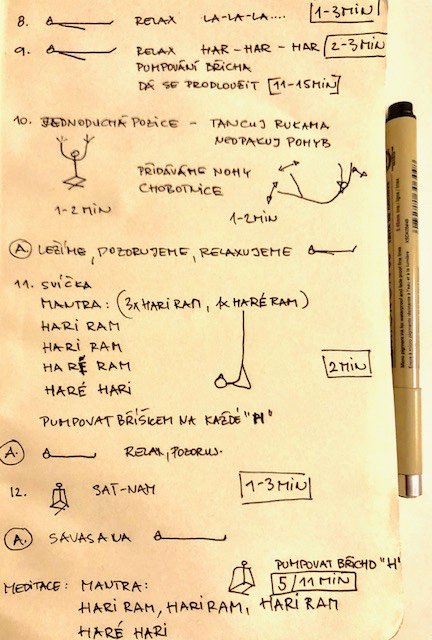 8. RELAX LA-LA-LA.... 1-3MIN
9. RELAX HAR-HAR-HAR 2-3MIN
PUMPOVÁNÍ BŘICHA
DÁ SE PRODLOUŽIT 11-15MIN
10. JEDNODUCHÁ POZICE - TANCUJ RUKAMA
NEOPAKUJ POHYB
PŘIDÁVÁME NOHY
CHOBOTNICE
1-2 MIN
1-2 MIN
A. LEŽÍME, POZORUJEME, RELAXUJEME
11. SVÍČKA
MANTRA: (3x HARI RAM, 1x HARÉ RAM)
HARI RAM
HARI RAM
HARÉ RAM
HARÉ HARI
2 MIN
PUMPOVAT BŘÍŠKEM NA KAŽDÉ "H"
A. RELAX, POZORUJ.
12. SAT-NAM 1-3 MIN
A. SAVASANA
PUMPOVAT BŘICHO "H"
MEDITACE: MANTRA: 5/11 MIN
HARI RAM, HARI RAM, HARI RAM
HARÉ HARI